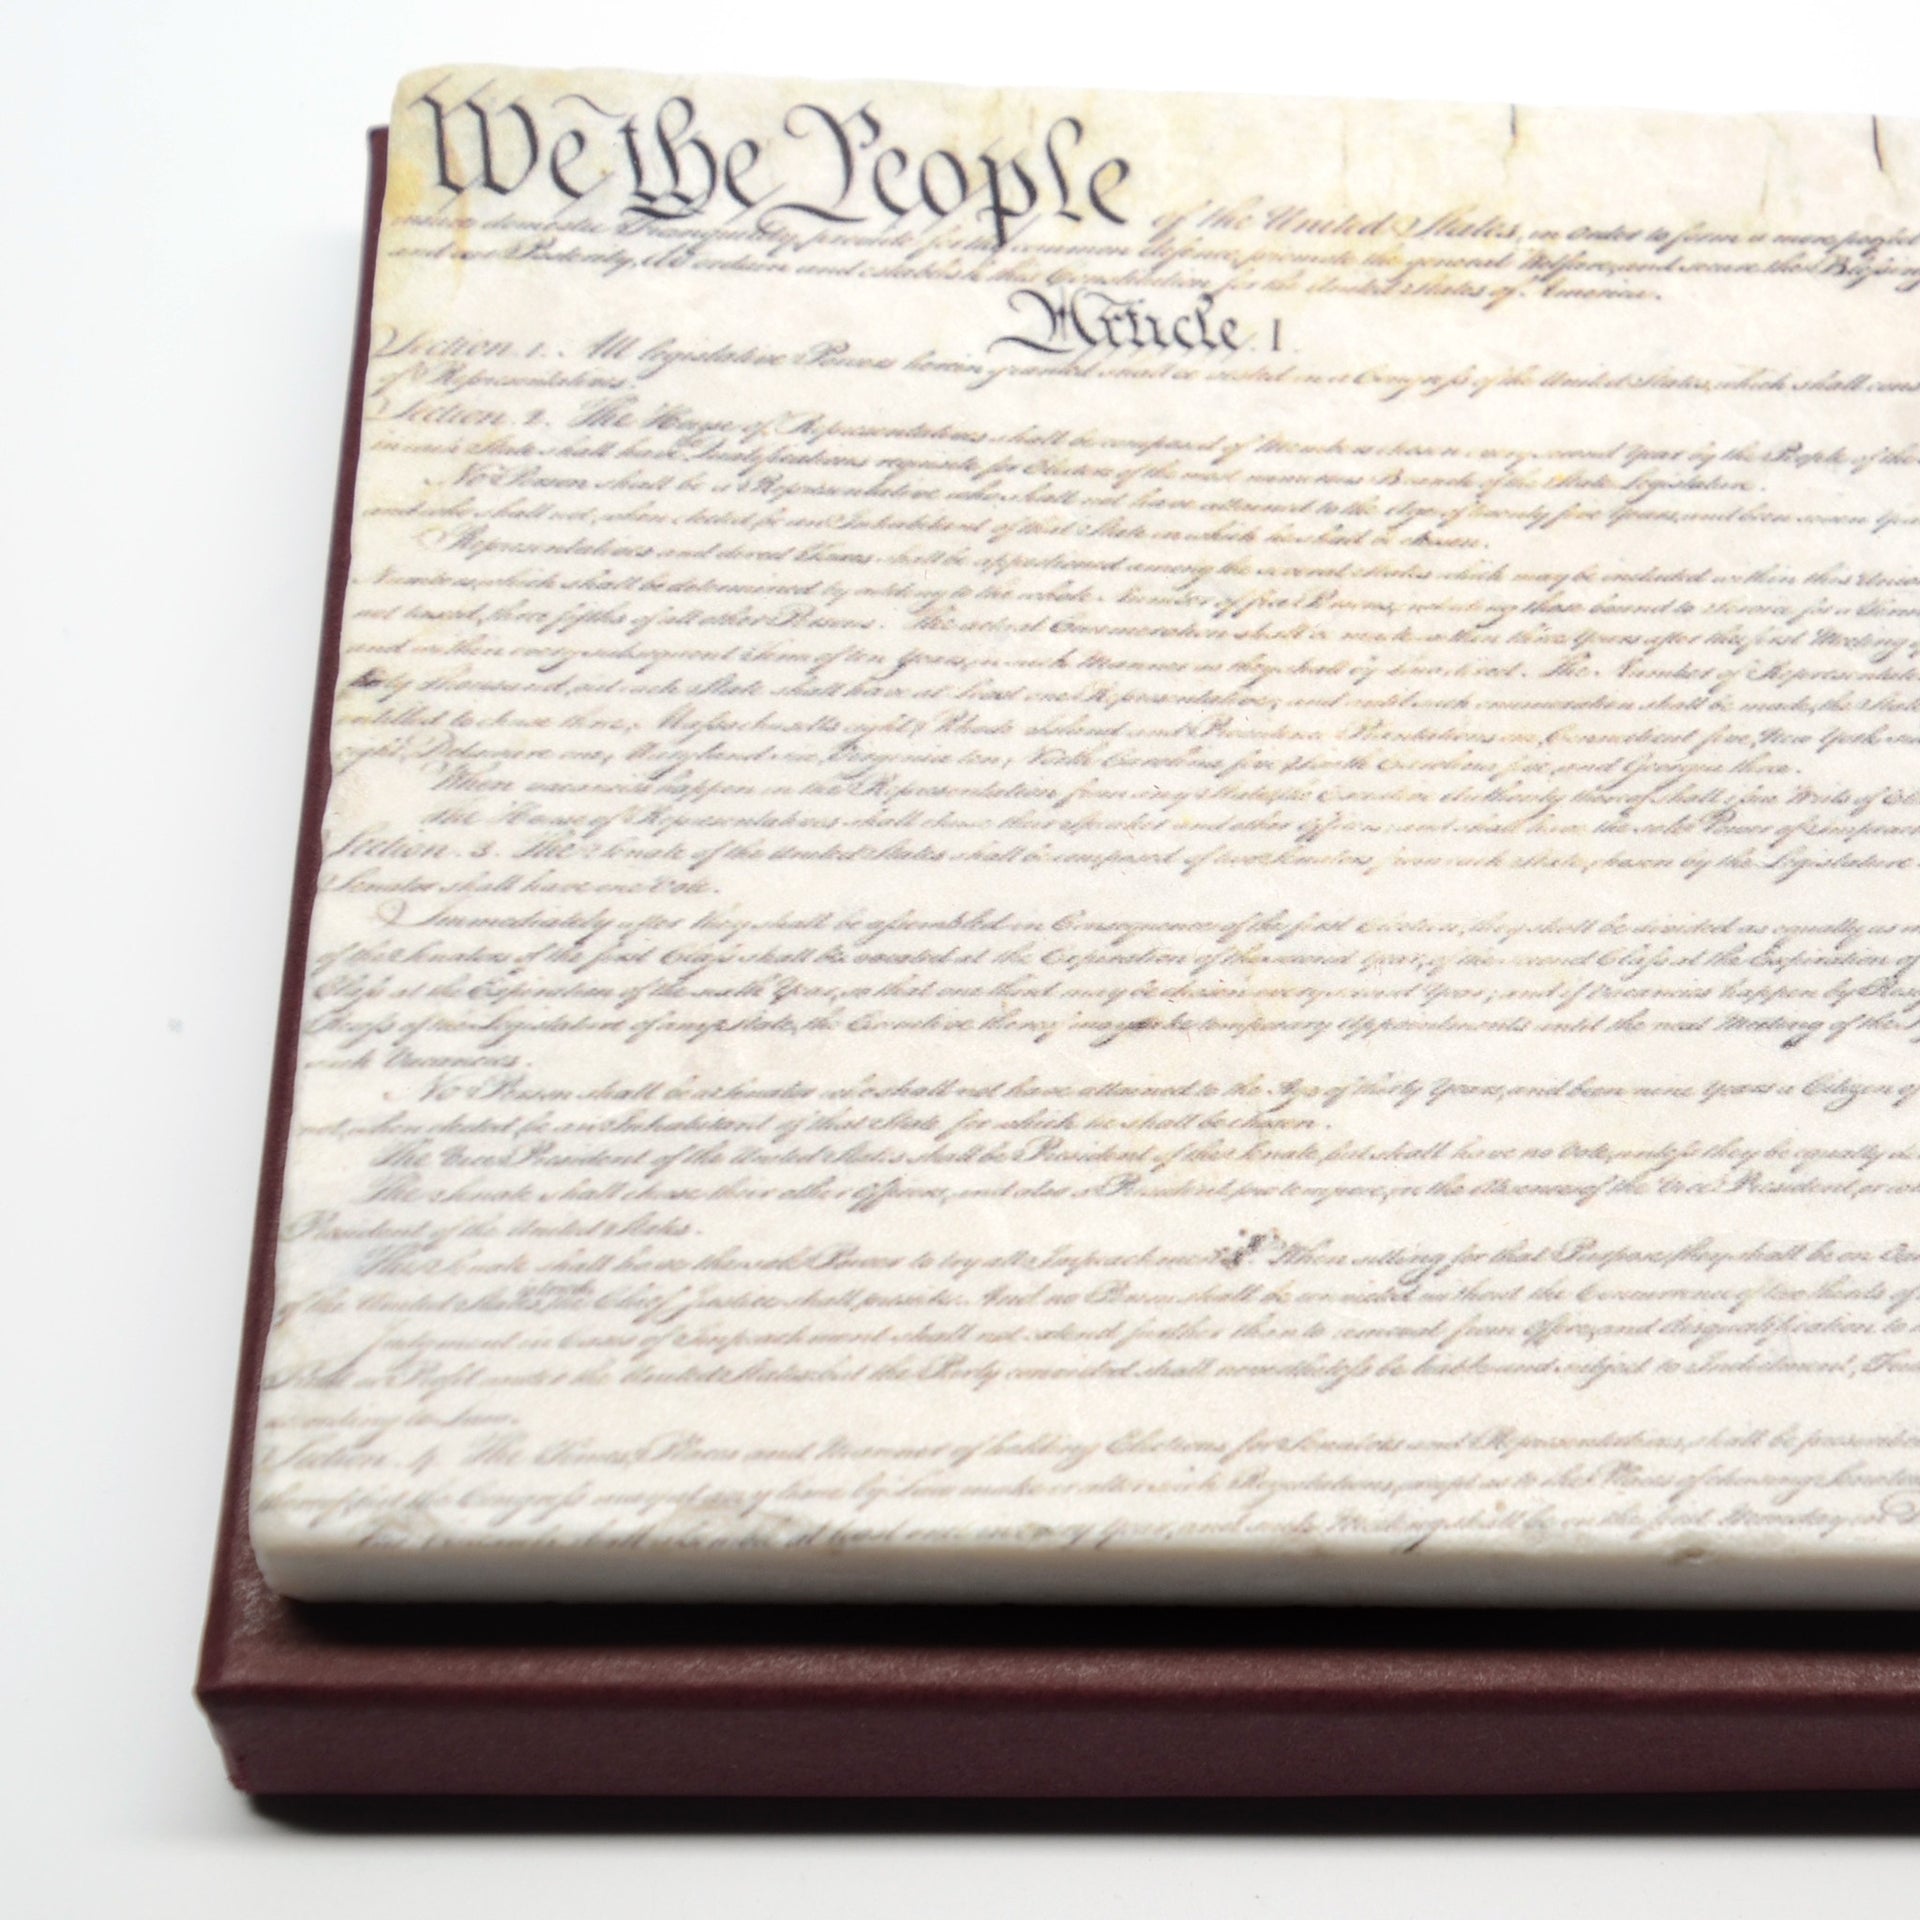 We the People of the United States, in Order to form a more perfect
insure domestic Tranquility, provide for the common defence, promote the general Welfare, and secure the Blessing
and our Posterity, do ordain and establish this Constitution for the United States of America.
Article. I.
Section. 1. All legislative Powers herein granted shall be vested in a Congress of the United States, which shall cons
of Representatives.
Section. 2. The House of Representatives shall be composed of Members chosen every second Year by the People of the
in each State shall have Qualifications requisite for Electors of the most numerous Branch of the State Legislature.
No Person shall be a Representative who shall not have attained to the Age of twenty five Years, and been seven Year
and who shall not, when elected, be an Inhabitant of that State in which he shall be chosen.
Representatives and direct Taxes shall be apportioned among the several States which may be included within this Union
Numbers, which shall be determined by adding to the whole Number of free Persons, including those bound to Service for a Term
not taxed, three fifths of all other Persons. The actual Enumeration shall be made within three Years after the first Meeting of
and within every subsequent Term of ten Years, in such Manner as they shall by Law direct. The Number of Representatives
thirty Thousand, but each State shall have at Least one Representative; and until such enumeration shall be made, the State
entitled to chuse three, Massachusetts eight, Rhode Island and Providence Plantations one, Connecticut five, New York six
eight, Delaware one, Maryland six, Virginia ten, North Carolina five, South Carolina five, and Georgia three.
When vacancies happen in the Representation from any State, the Executive Authority thereof shall issue Writs of Ele
The House of Representatives shall chuse their Speaker and other Officers; and shall have the sole Power of Impeach
Section. 3. The Senate of the United States shall be composed of two Senators from each State, chosen by the Legislature
Senator shall have one Vote.
Immediately after they shall be assembled in Consequence of the first Election, they shall be divided as equally as m
of the Senators of the first Class shall be vacated at the Expiration of the second Year, of the second Class at the Expiration of
Class at the Expiration of the sixth Year, so that one third may be chosen every second Year; and if Vacancies happen by Resi
Recess of the Legislature of any State, the Executive thereof may make temporary Appointments until the next Meeting of the
such Vacancies.
No Person shall be a Senator who shall not have attained to the Age of thirty Years, and been nine Years a Citizen of
not, when elected, be an Inhabitant of that State for which he shall be chosen.
The Vice President of the United States shall be President of the Senate, but shall have no Vote, unless they be equally di
The Senate shall chuse their other Officers, and also a President pro tempore, in the Absence of the Vice President, or wh
President of the United States.
The Senate shall have the sole Power to try all Impeachments. When sitting for that Purpose, they shall be on Oa
of the United States is tried, the Chief Justice shall preside: And no Person shall be convicted without the Concurrence of two thirds of
Judgment in Cases of Impeachment shall not extend further than to removal from Office, and disqualification to
Trust or Profit under the United States: but the Party convicted shall nevertheless be liable and subject to Indictment, Tri
according to Law.
Section. 4. The Times, Places and Manner of holding Elections for Senators and Representatives, shall be prescrib
thereof; but the Congress may at any time by Law make or alter such Regulations, except as to the Places of chusing Senators
The Congress shall assemble at least once in every Year, and such Meeting shall be on the first Monday in D